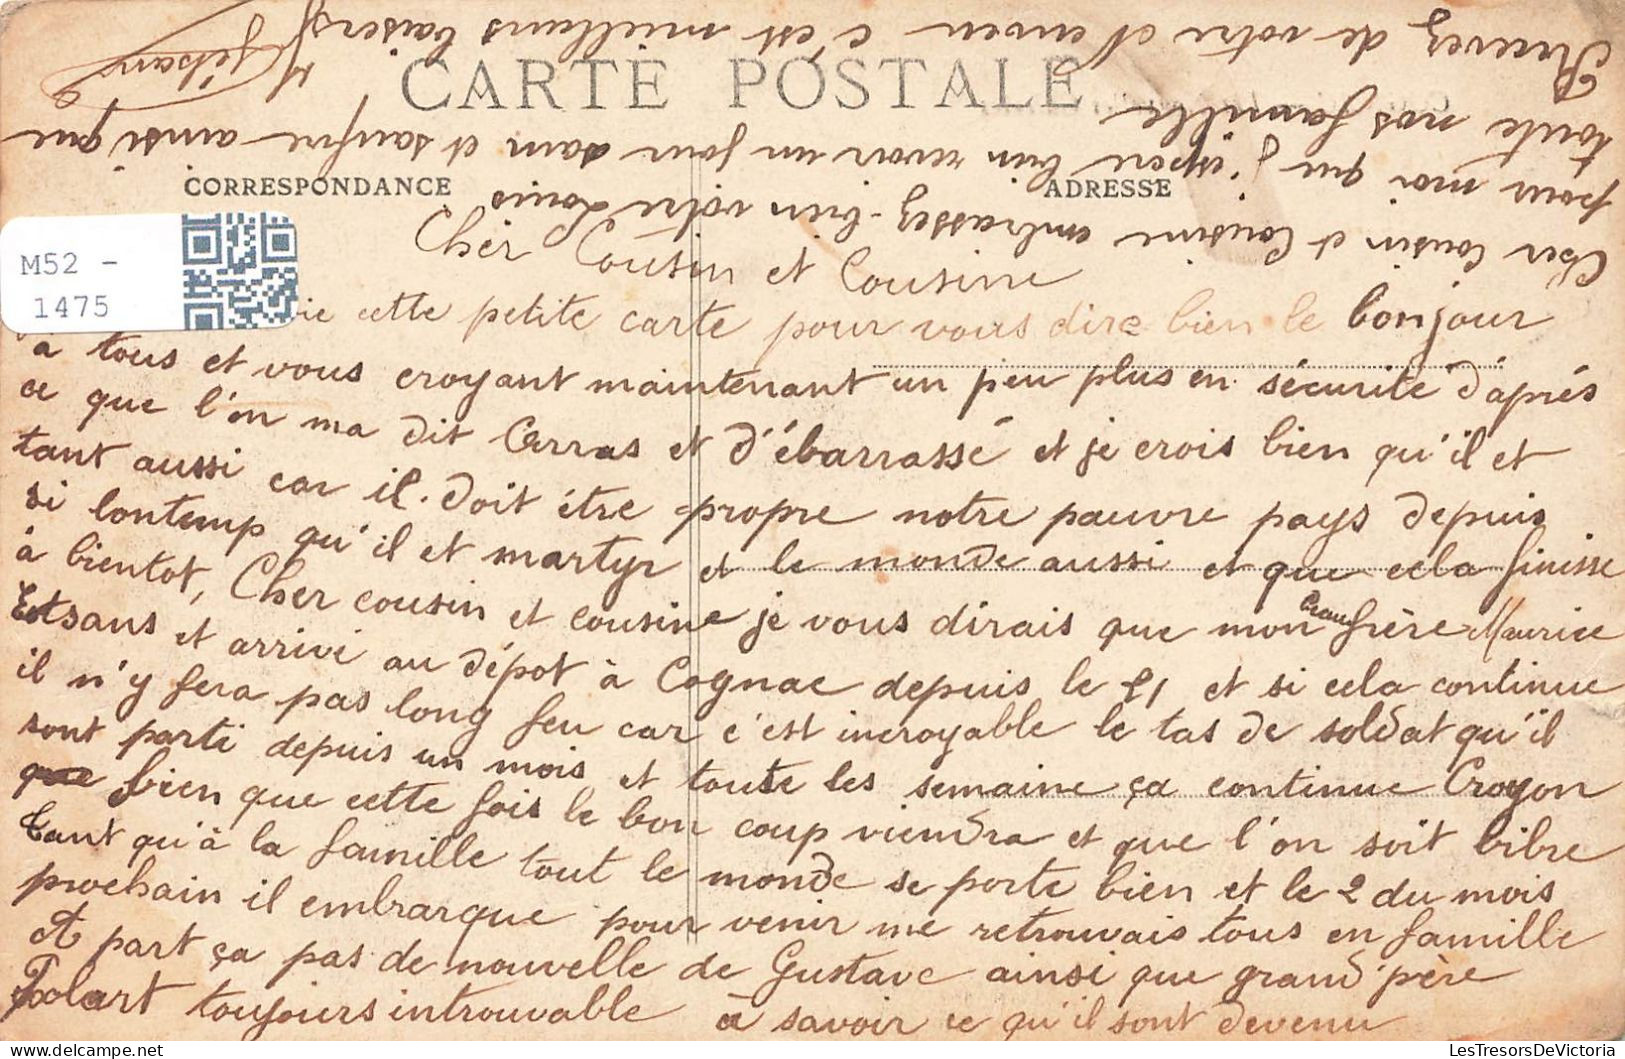 CARTE POSTALE
CORRESPONDANCE
ADRESSE
M52 -
1475
Cher Cousin et Cousine
cette petite carte pour vous dire bien le bonjour
à tous et vous croyant maintenant un peu plus en sécurité d'aprés
ce que l'on ma dit Arras et d'ébarrassé et je crois bien qu'il et
tant aussi car il doit étre propre notre pauvre pays depuis
si lontemp qu'il et martyr et le monde aussi et que cela finisse
à bientot, Cher cousin et cousine je vous dirais que mon beau frère Maurice
et arrivé au dépot à Cognac depuis le 21 et si cela continue
il n'y fera pas long feu car c'est incroyable le tas de soldat qu'il
sont parti depuis un mois et toute les semaine ça continue Croyon
bien que cette fois le bon coup viendra et que l'on soit libre
Tant qu'à la famille tout le monde se porte bien et le 2 du mois
prochain il embrarque pour venir me retrouvais tous en famille
A part ça pas de nouvelle de Gustave ainsi que grand'père
Folart toujours introuvable à savoir ce qu'il sont devenu
Cher Cousin et Cousine embrassez-bien votre Louis
pour moi que j'espere bien revoir un jour sain et saufre ainsi que
toute nos famille
Recevez de votre et envoi c'est meilleurs baisers
LesTresorsDeVictoria.com